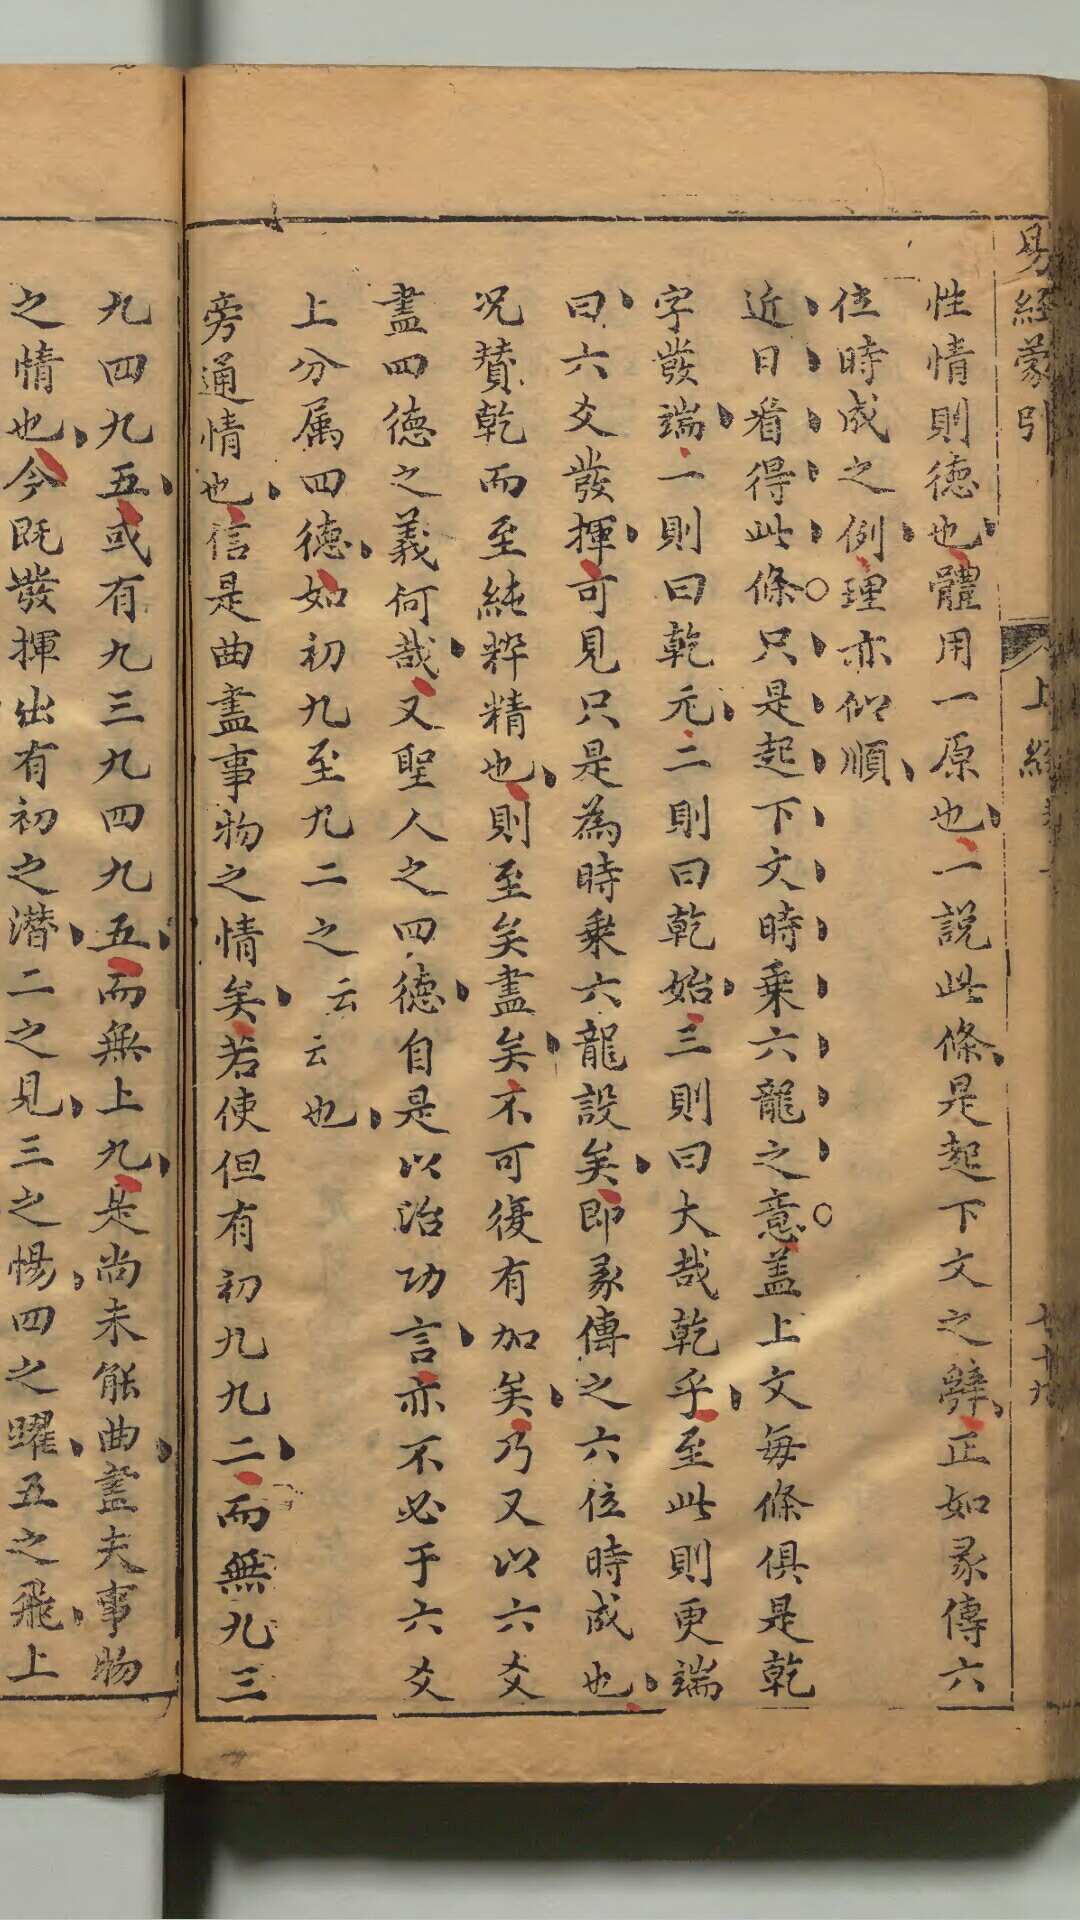 易經蒙引 上經
性情則德也體用一原也一說此條是起下文之辭正如彖傳六
位時成之例理亦似順
近日看得此條只是起下文時乗六龍之意盖上文每條俱是乾
字發端一則曰乾元二則曰乾始三則曰大哉乾乎至此則更端
曰六爻發揮可見只是為時乗六龍設矣即彖傳之六位時成也
况贊乾而至純粹精也則至矣盡矣不可復有加矣乃又以六爻
盡四德之義何哉又聖人之四德自是以治功言亦不必于六爻
上分属四德如初九至九二之云云也
旁通情也信是曲盡事物之情矣若使但有初九九二而無九三
九四九五或有九三九四九五而無上九是尚未能曲盡夫事物
之情也今既發揮出有初之潛二之見三之惕四之躍五之飛上